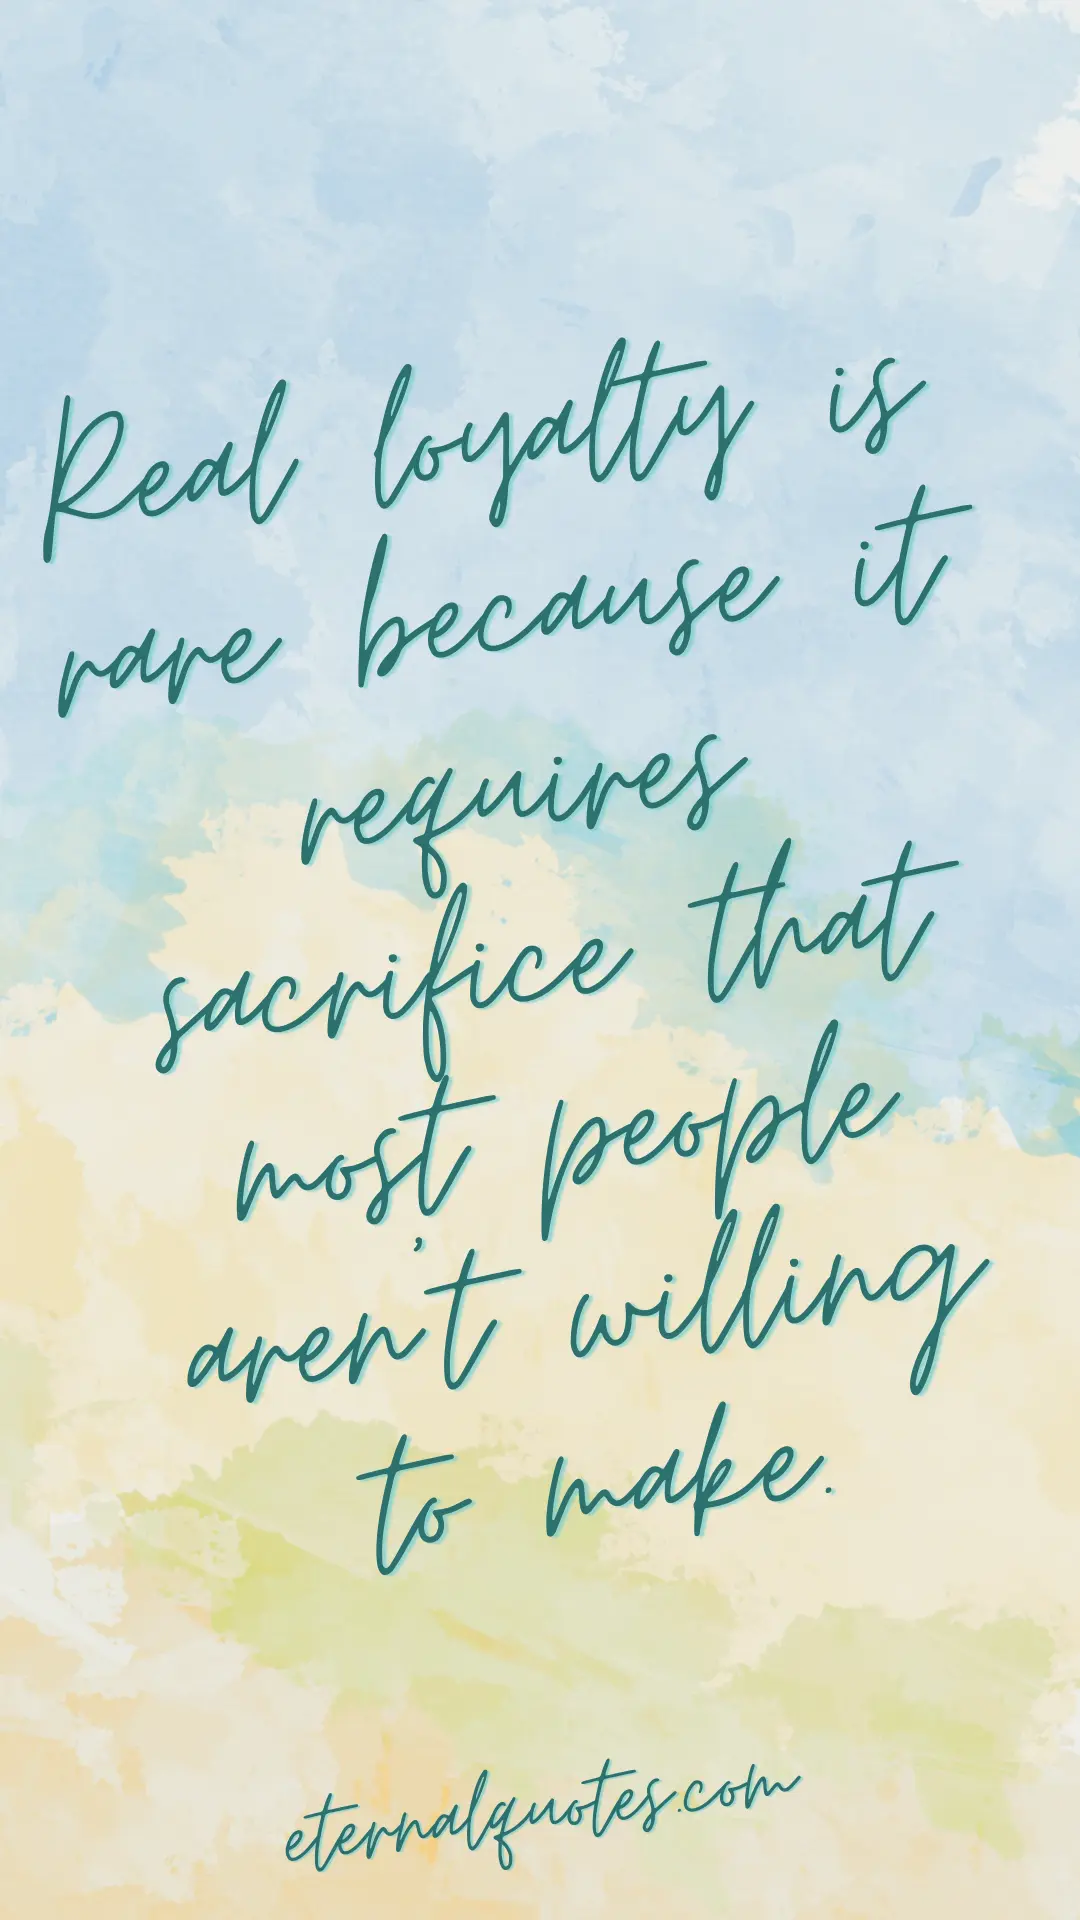 Real loyalty is
rare because it
requires
sacrifice that
most people
aren't willing
to make.
eternalquotes.com